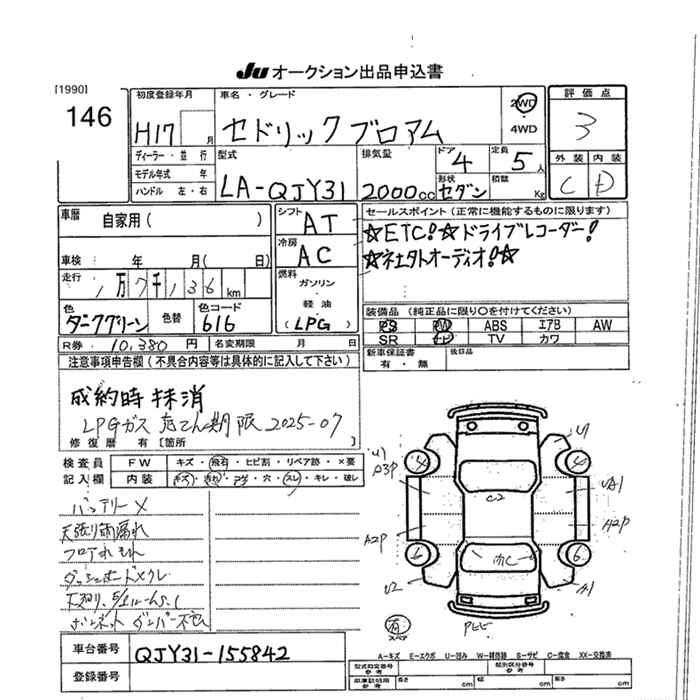 JU オークション出品申込書
[1990]
146
初度登録年月
H17 月
ディーラー・並行
モデル年式 年
ハンドル 左・右
車名・グレード
セドリックブロアム
2WD
4WD
評価点
3
外装 内装
C D
型式
LA-QJY31
排気量
2000cc
ドア
4
形状
セダン
定員
5人
積載
Kg
車歴
自家用( )
車検 年 月( 日)
走行
1万7千136km
色
ダークグリーン
色替
色コード
616
R券 10,380円
名変期限 月 日
シフト
AT
冷房
AC
燃料
ガソリン
・
軽油
(LPG)
セールスポイント(正常に機能するものに限ります)
☆ETC!☆ドライブレコーダー!
☆社外オーディオ!☆
装備品(純正品に限り○を付けてください)
PS PW ABS エアB AW
SR ナビ TV カワ
新車保証書
有・無
後日品
注意事項申告欄(不具合内容等は具体的に記入して下さい)
成約時抹消
LPGガス充てん期限2025-07
修復歴 有〔箇所
検査員
記入欄
FW キズ・飛石・ヒビ割・リペア跡・×要
内装 キズ・汚れ・コゲ・穴・スレ・キレ・破レ
バッテリーX
天張り雨漏れ
フロアれ
ダッシュボードメクレ
ボンネットダンパー不良
車台番号 QJY31-155842
登録番号
U1
A3P
A2P
U2
C2
UA1
A2P
A1
4
4
6
6
有
スペア
A-キズ E-エクボ U-凹み W-補修跡 S-サビ C-腐食 XX-交換済
型式指定番号
参考
類別区分番号
参考
車庫証明用
参考
長さ cm 幅 cm 高さ cm